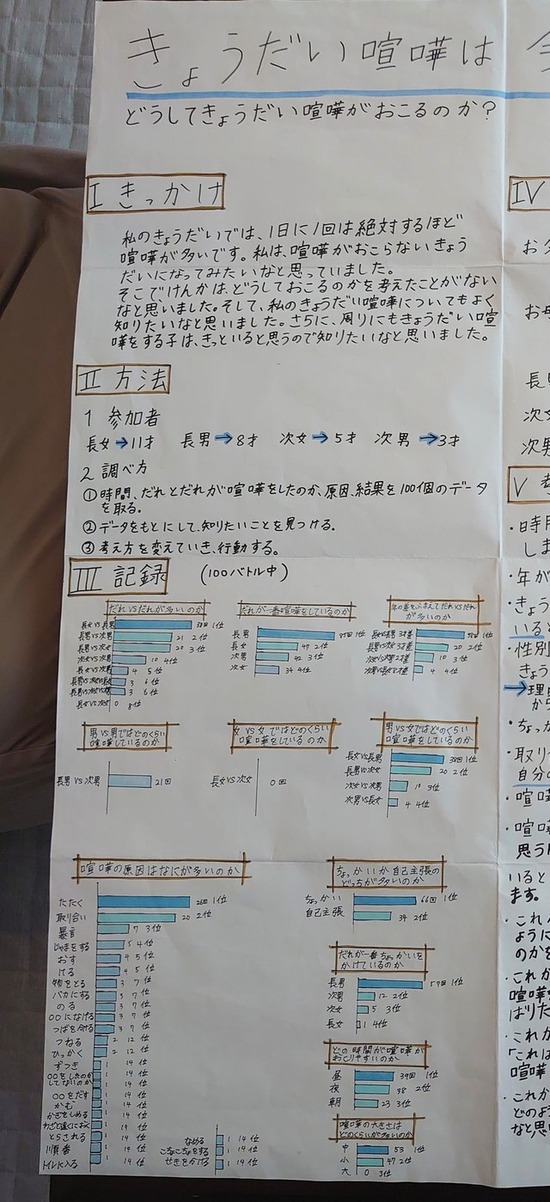 きょうだい喧嘩は
どうしてきょうだい喧嘩がおこるのか?
I きっかけ
私のきょうだいでは、1日に1回は絶対するほど
喧嘩が多いです。私は、喧嘩がおこらないきょう
だいになってみたいなと思っていました。
そこでけんかは、どうしておこるのかを考えたことがない
なと思いました。そして、私のきょうだい喧嘩についてもよく
知りたいなと思いました。さらに、周りにもきょうだい喧
嘩をする子は、きっといると思うので知りたいなと思いました。
II 方法
1 参加者
長女→11才 長男→8才 次女→5才 次男→3才
2 調べ方
①時間、だれとだれが喧嘩をしたのか、原因、結果を100個のデータ
を取る。
②データをもとにして、知りたいことを見つける。
③考え方を変えていき、行動する。
III 記録 (100バトル中)
だれVSだれが多いのか
長女VS長男 38回 1位
長男VS次男 21 2位
長男VS次女 20 3位
10 4位
4 5位
3 6位
3 6位
0 8位
だれが一番喧嘩をしているのか
長男 1位
長女 47 2位
次男 42 3位
次女 34 4位
年の差をふまえてだれVSだれ
が多いのか
1位
20 2位
10 3位
4 4位
男VS男ではどのくらい
喧嘩しているのか
長男VS次男 21回
女VS女ではどのくらい
喧嘩をしているのか
長女VS次女 0回
男VS女ではどのくらい
喧嘩をしているのか
長女VS長男 38回 1位
長男VS次女 20 2位
次女VS次男 10 3位
次男VS長女 4 4位
喧嘩の原因はなにが多いのか
たたく 1位
取り合い 20 2位
暴言 7 3位
じゃまをする 5 4位
おす 4 5位
ける 4 5位
物をとる 3 7位
バカにする 3 7位
のる 3 7位
○○になげる 3 7位
つばを付ける 3 7位
つねる 2 12位
ひっかく 2 12位
ずつき 1 14位
○○をしたのか
してないのか 1 14位
○○をだす 1 14位
かむ 1 14位
かぎをしめる 1 14位
わざと遠くにおく 1 14位
とらされる 1 14位
順番 1 14位
トイレに入る 1 14位
なめる 1 14位
こちょこちょをする 1 14位
せきをかける 1 14位
ちょっかいか自己主張の
どっちが多いのか
ちょっかい 66回 1位
自己主張 34 2位
だれが一番ちょっかいを
かけているのか
長男 1位
次男 12 2位
次女 5 3位
長女 1 4位
どの時間が喧嘩が
おこりやすいのか
昼 39回 1位
夜 38 2位
朝 23 3位
喧嘩の大きさは
どのくらいが多いのか
中 53 1位
小 47 2位
大 0 3位
IV
お
お
長
次
次男
V
・時
しま
・年が
・きょう
いると
・性別
きょう
→理
から
・ちょっか
・取り
自分の
・喧嘩
・喧嘩
思うん
いると
ます。
・これ
ように
のかを
・これが
喧嘩
ばりた
・これか
「これは
喧嘩
・これか
どのよう
なと思い